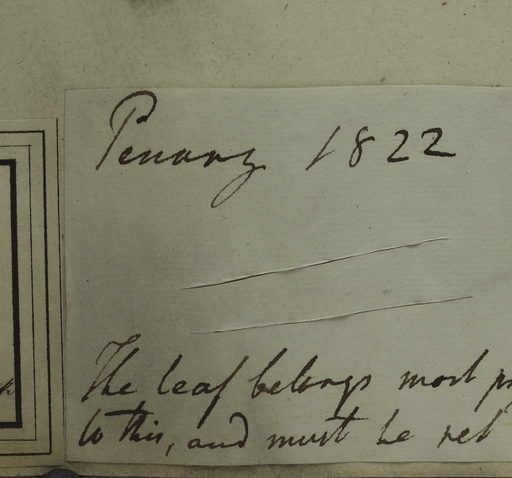 Penang 1822
The leaf belongs most
to this, and must be